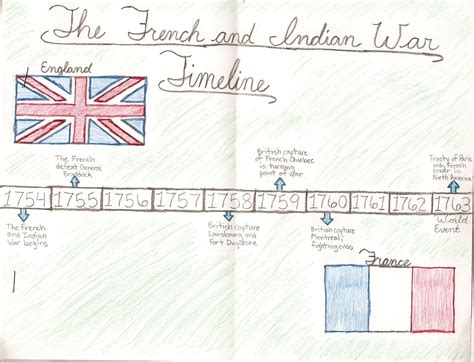 The French and Indian War
Timeline
England
The French
defeat General
Braddock
British capture
of French Quebec
is turning
point of war
Treaty of Paris
French
power in
North America
1754 1755 1756 1757 1758 1759 1760 1761 1762 1763
The French
and Indian
War begins
British capture
Louisbourg and
Fort Duquesne
British capture
Montreal;
fighting ends
World
Event
France